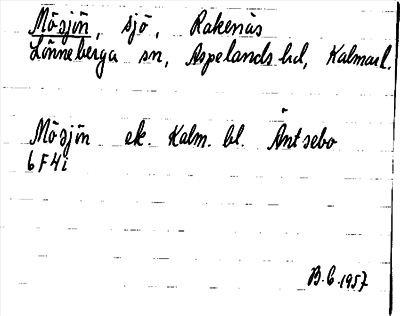 Mösjön, sjö, Rakenäs
Lönneberga sn, Aspelands hd, Kalmar l.
Mösjön ek. Kalm. bl. Äntsebo
6 F 4 i
B.G. 1957